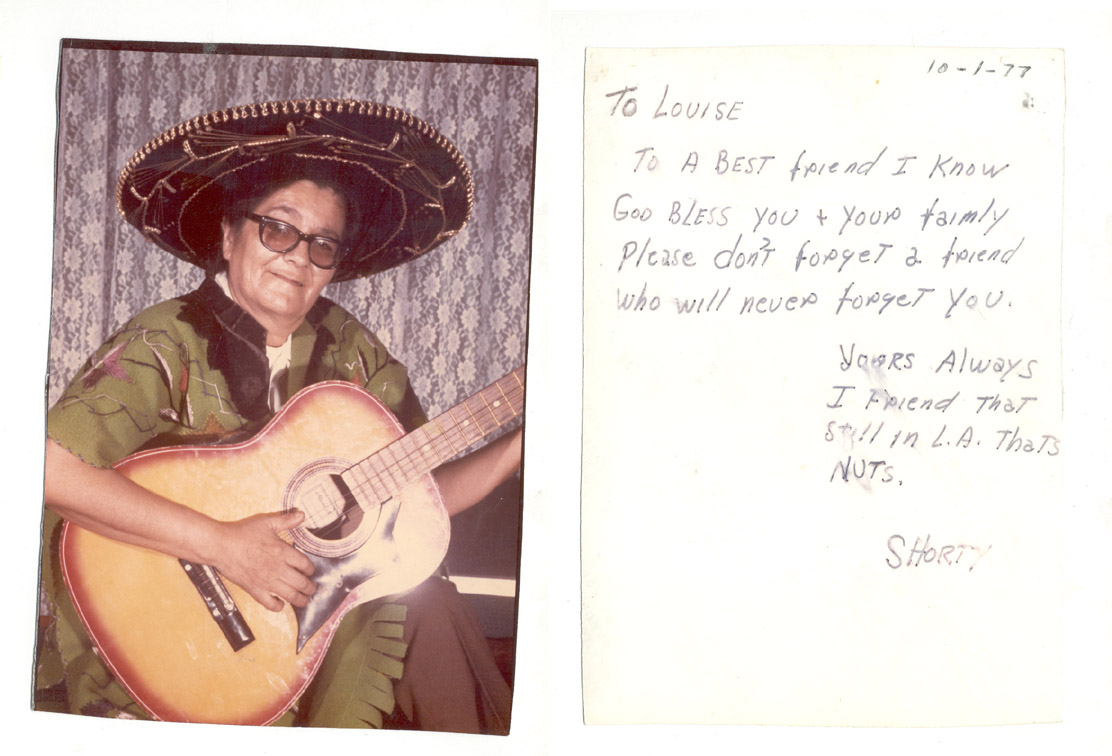 10-1-77
To Louise
To A BEST friend I Know
God BLESS you + your faimly
Please don't forget a friend
who will never forget You.
Yours Always
I Friend That
Still in L.A. Thats
NUTS.
SHORTY